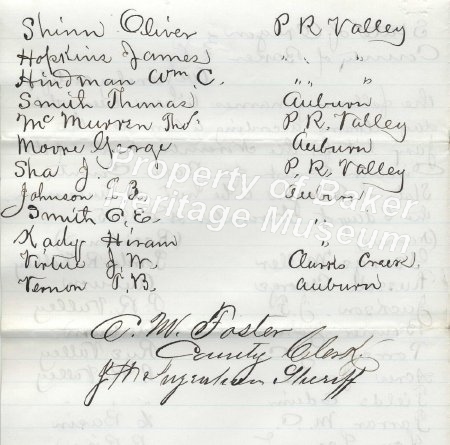 Shinn Oliver P R Valley
Hopkins James " "
Hindman Wm C. " "
Smith Thomas Auburn
Mc Murren Thos P. R. Valley
Moore George Auburn
Sha J. P. R. Valley
Johnson Auburn
Smith C. E. "
Kady Hiram "
Virtue J. W. Clarks Creek.
Vernon T. B. Auburn
Property of Baker
Heritage Museum
C. M. Foster
County Clerk
Sheriff